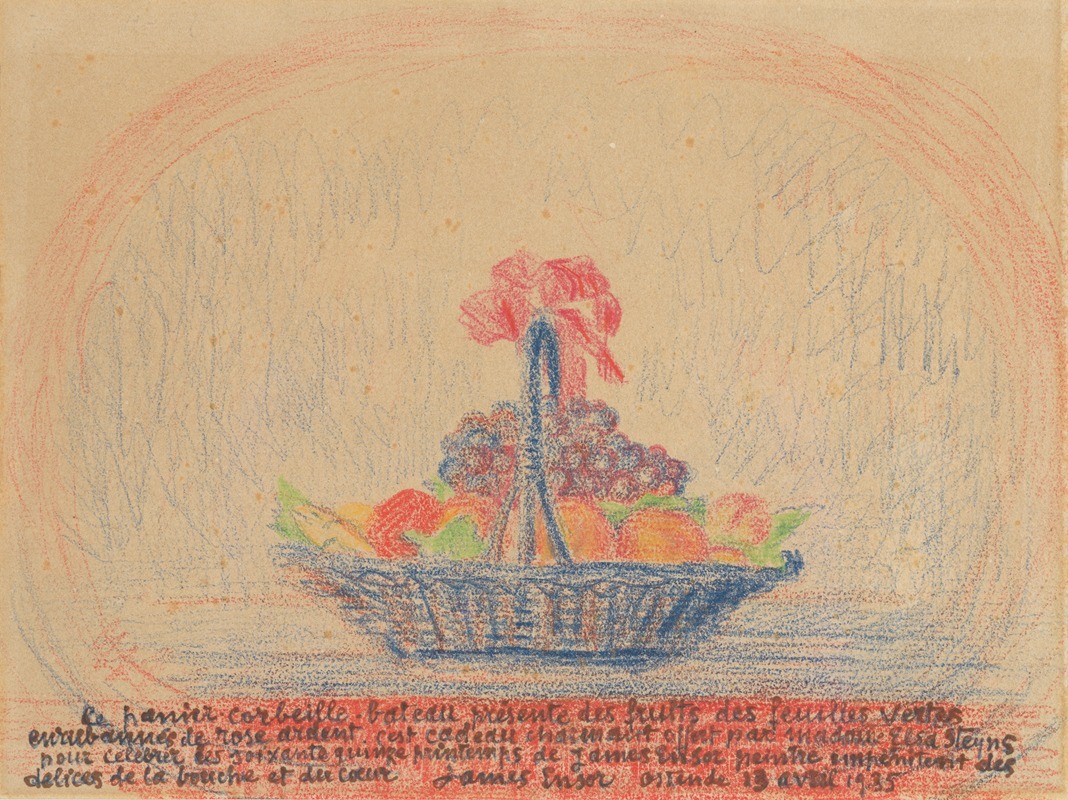 Ce panier corbeille bateau présente des fruits des feuilles vertes
enrubannés de rose ardent, c'est cadeau charmant offert par madame Elsa Steyns
pour célébrer les soixante quinze printemps de James Ensor peintre impénitent des
délices de la bouche et du cœur James Ensor Ostende 13 avril 1935